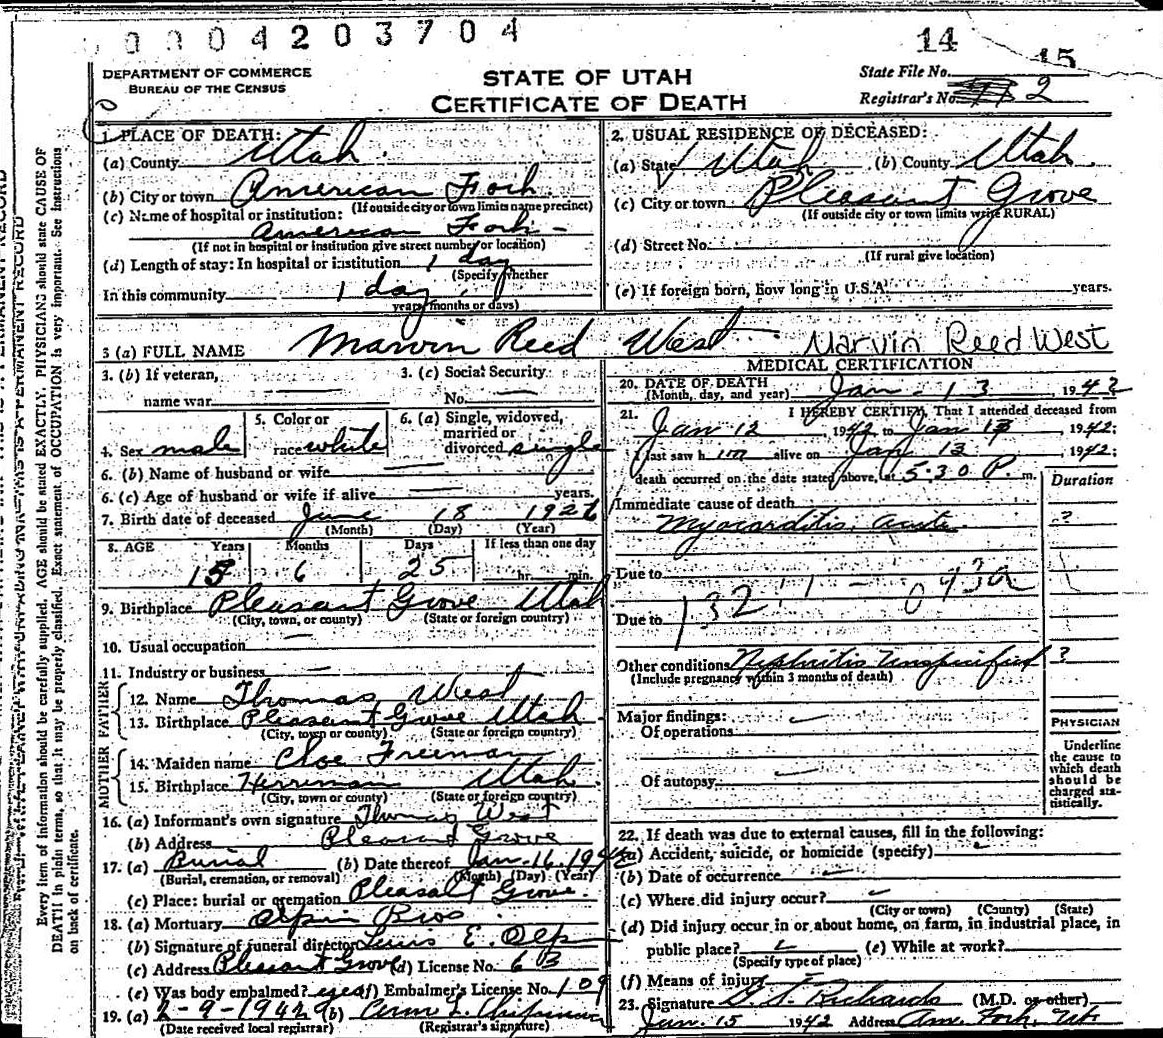 0004203704
14
15
DEPARTMENT OF COMMERCE
BUREAU OF THE CENSUS
STATE OF UTAH
CERTIFICATE OF DEATH
State File No.
Registrar's No. 2
1. PLACE OF DEATH:
(a) County Utah
(b) City or town American Fork
(If outside city or town limits name precinct)
(c) Name of hospital or institution:
American Fork
(If not in hospital or institution give street number or location)
(d) Length of stay: In hospital or institution 1 day
(Specify whether
In this community 1 day
years, months or days)
2. USUAL RESIDENCE OF DECEASED:
(a) State Utah (b) County Utah
(c) City or town Pleasant Grove
(If outside city or town limits write RURAL)
(d) Street No.
(If rural give location)
(e) If foreign born, how long in U.S.A. years.
3 (a) FULL NAME Marvin Reed West Marvin Reed West
3. (b) If veteran,
name war
3. (c) Social Security
No.
4. Sex male
5. Color or
race white
6. (a) Single, widowed,
married or
divorced single
6. (b) Name of husband or wife
6. (c) Age of husband or wife if alive years.
7. Birth date of deceased June 18 1926
(Month) (Day) (Year)
8. AGE Years Months Days If less than one day
15 6 25 hr. min.
9. Birthplace Pleasant Grove Utah
(City, town, or county) (State or foreign country)
10. Usual occupation
11. Industry or business
FATHER
12. Name Thomas West
13. Birthplace Pleasant Grove Utah
(City, town or county) (State or foreign country)
MOTHER
14. Maiden name Cloe Freeman
15. Birthplace Herriman Utah
(City, town or county) (State or foreign country)
16. (a) Informant's own signature Thomas West
(b) Address Pleasant Grove
17. (a) Burial (b) Date thereof Jan. 16. 1942
(Burial, cremation, or removal) (Month) (Day) (Year)
(c) Place: burial or cremation Pleasant Grove
18. (a) Mortuary Olpin Bros
(b) Signature of funeral director Lewis E. Olp
(c) Address Pleasant Grove (d) License No. 6 B
(e) Was body embalmed? yes (f) Embalmer's License No. 109
19. (a) 2-9-1942 (b)
(Date received local registrar) (Registrar's signature)
MEDICAL CERTIFICATION
20. DATE OF DEATH
(Month, day, and year) Jan. 13 1942
21. I HEREBY CERTIFY, That I attended deceased from
Jan 12, 1942 to Jan 13, 1942;
I last saw him alive on Jan 13 1942;
death occurred on the date stated above, at 5:30 P. m.
Duration
Immediate cause of death
Myocarditis, acute ?
Due to
132 1 - 093a
Due to
Other conditions Nephritis Unspecified ?
(Include pregnancy within 3 months of death)
Major findings:
Of operations
Of autopsy
PHYSICIAN
Underline
the cause to
which death
should be
charged sta-
tistically.
22. If death was due to external causes, fill in the following:
(a) Accident, suicide, or homicide (specify)
(b) Date of occurrence
(c) Where did injury occur?
(City or town) (County) (State)
(d) Did injury occur in or about home, on farm, in industrial place, in
public place? (e) While at work?
(Specify type of place)
(f) Means of injury
23. Signature G. S. Richards (M.D. or other)
Jan. 15 1942 Address Am. Fork, Ut.
Every item of information should be carefully supplied. AGE should be stated EXACTLY. PHYSICIANS should state CAUSE OF
DEATH in plain terms, so that it may be properly classified. Exact statement of OCCUPATION is very important. See Instructions
on back of certificate.